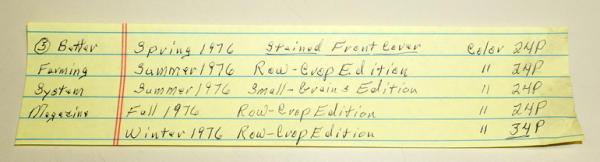 ⑤ Better Spring 1976 Stained Front Cover Color 24P
Farming Summer 1976 Row-Crop Edition " 24P
System Summer 1976 Small-Grains Edition " 24P
Magazine Fall 1976 Row-Crop Edition " 24P
Winter 1976 Row-Crop Edition " 34P